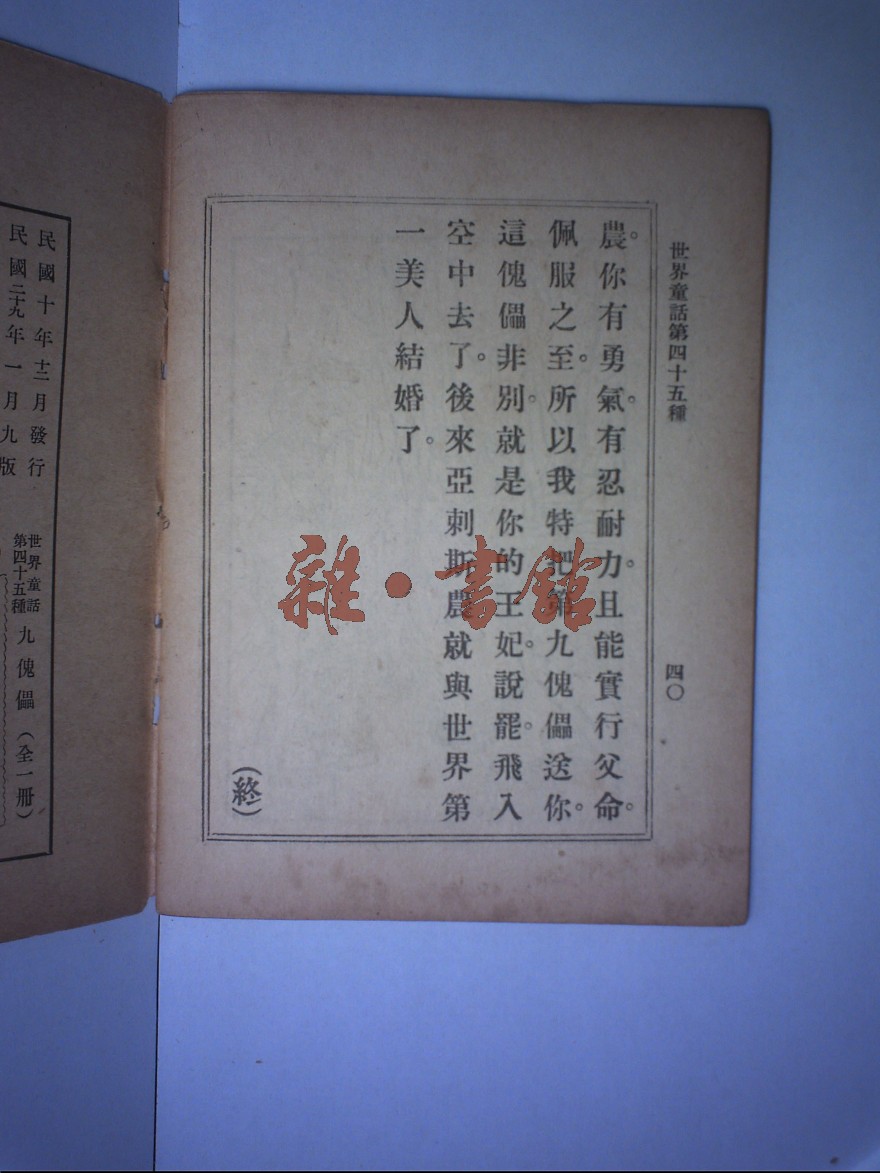 世界童話第四十五種
四〇
農。你有勇氣。有忍耐力。且能實行父命。
佩服之至。所以我特把第九傀儡送你。
這傀儡非別。就是你的王妃。說罷。飛入
空中去了。後來亞刺斯農就與世界第
一美人結婚了。
(終)
雜·書館
民國十年十二月發行
民國二十九年一月九版
世界童話
第四十五種
九傀儡(全一冊)